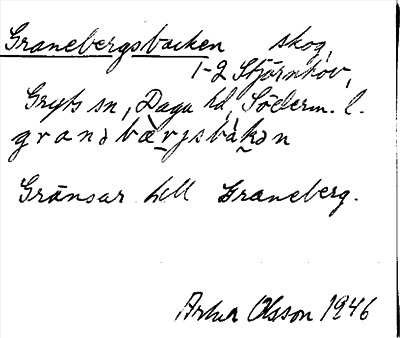 Granebergsbacken skog,
1-2 Stjärnhov,
Gryts sn, Daga hd, Söderm. l.
granəbærjsbàkən
Gränsar till Graneberg.
Artur Olsson 1946